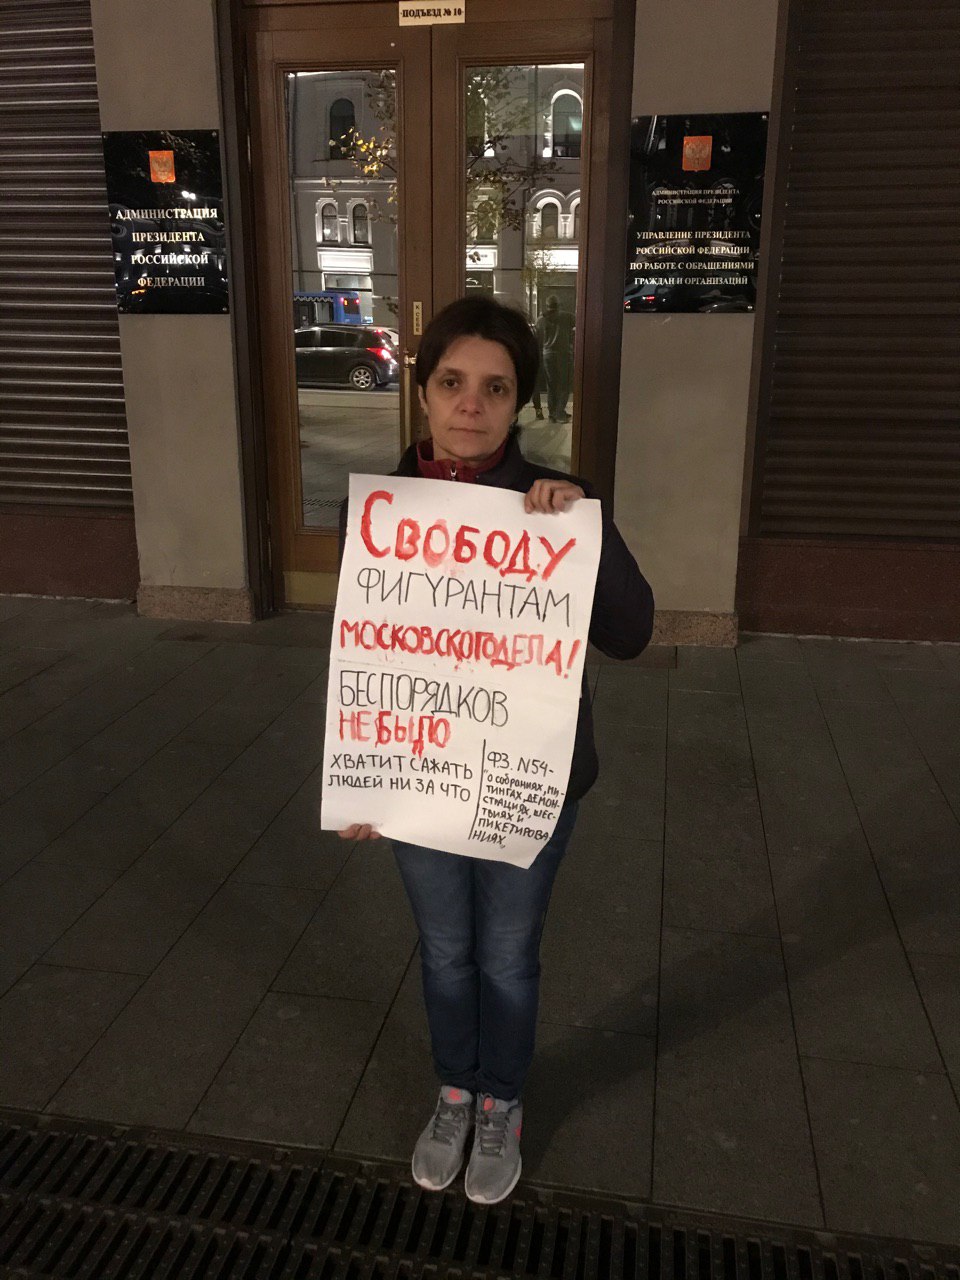 ПОДЪЕЗД № 10
АДМИНИСТРАЦИЯ
ПРЕЗИДЕНТА
РОССИЙСКОЙ
ФЕДЕРАЦИИ
АДМИНИСТРАЦИЯ ПРЕЗИДЕНТА
РОССИЙСКОЙ ФЕДЕРАЦИИ
УПРАВЛЕНИЕ ПРЕЗИДЕНТА
РОССИЙСКОЙ ФЕДЕРАЦИИ
ПО РАБОТЕ С ОБРАЩЕНИЯМИ
ГРАЖДАН И ОРГАНИЗАЦИЙ
К СЕБЕ
СВОБОДУ
ФИГУРАНТАМ
МОСКОВСКОГО ДЕЛА!
БЕСПОРЯДКОВ
НЕ БЫЛО
ХВАТИТ САЖАТЬ
ЛЮДЕЙ НИ ЗА ЧТО
ФЗ. N54-
"О СОБРАНИЯХ, МИ-
ТИНГАХ, ДЕМОН-
СТРАЦИЯХ, ШЕС-
ТВИЯХ И
ПИКЕТИРОВА-
НИЯХ"